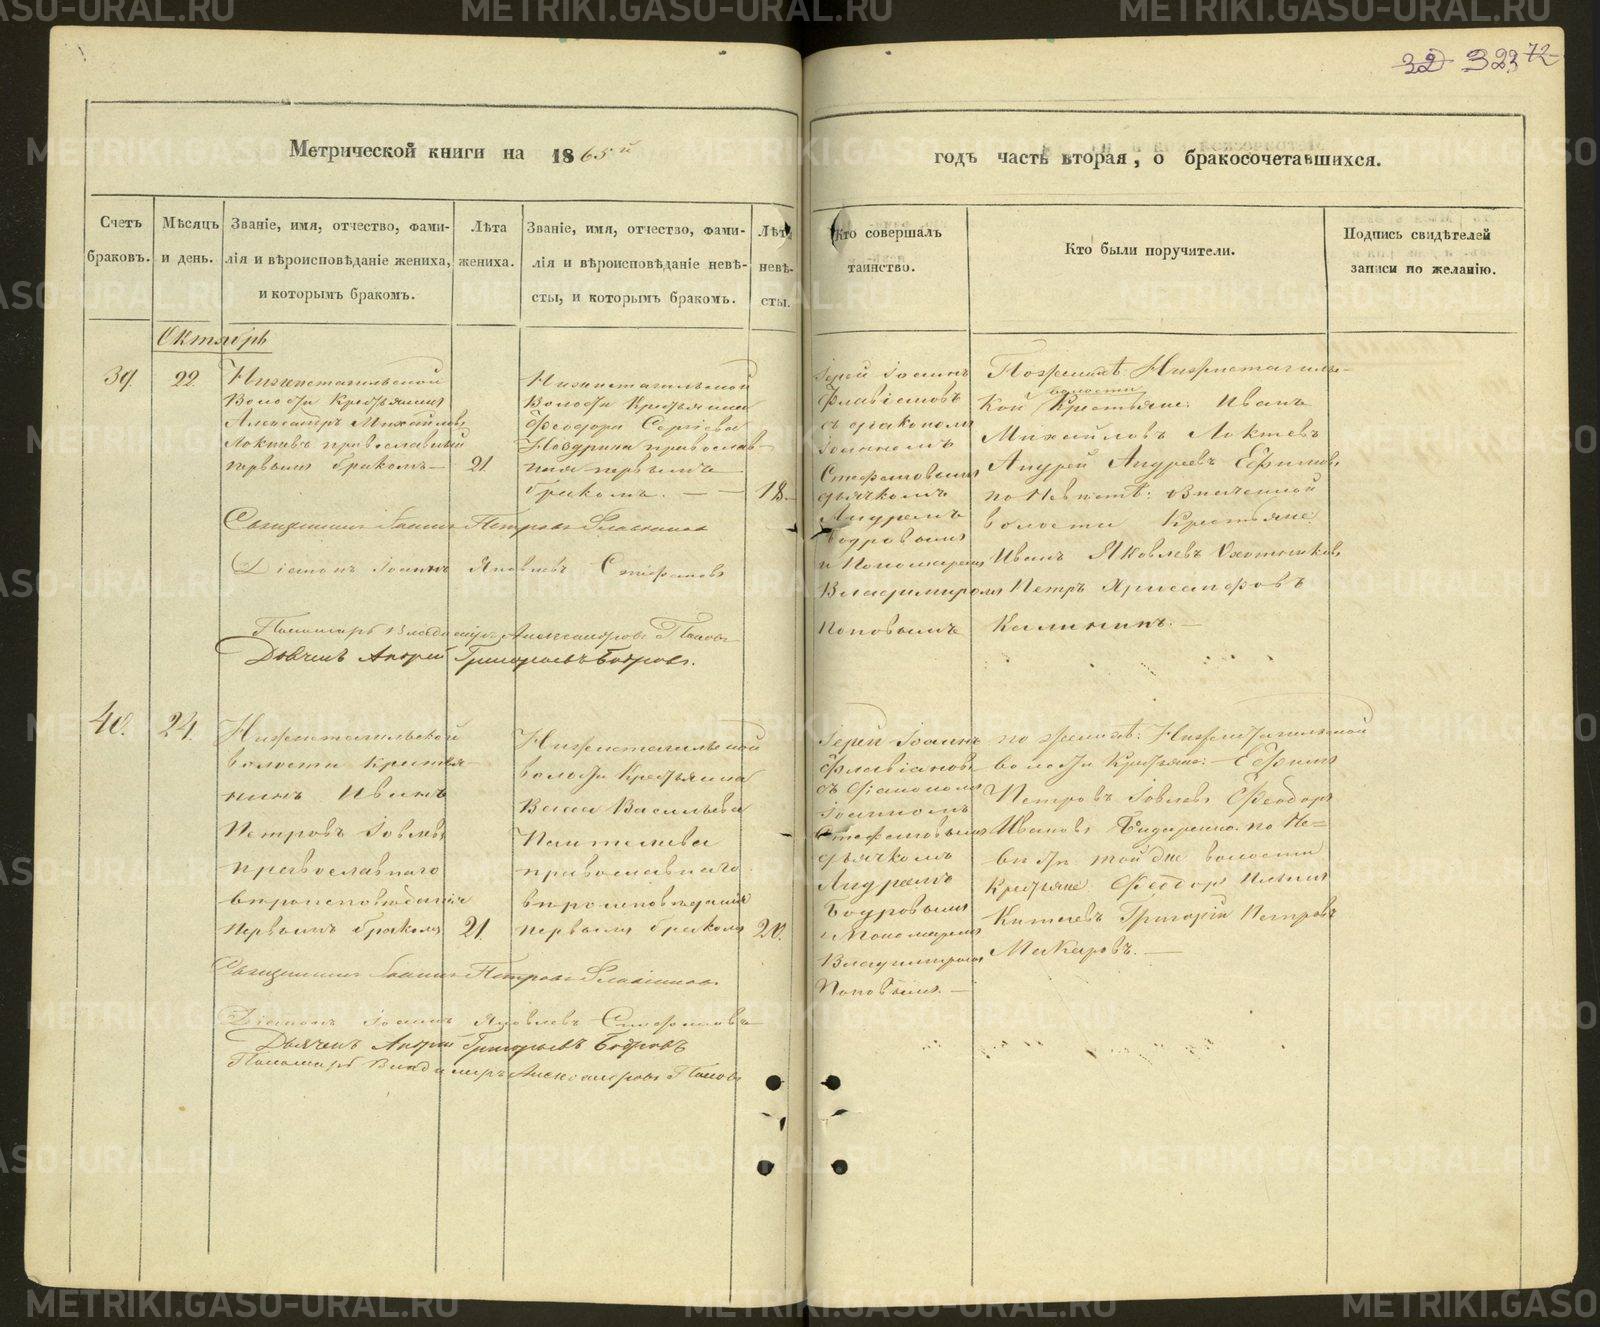 32 323 72
Метрической книги на 1865й
годъ часть вторая, о бракосочетавшихся.
Счетъ браковъ.
Мѣсяцъ и день.
Званіе, имя, отчество, фами-
лія и вѣроисповѣданіе жениха,
и которымъ бракомъ.
Лѣта
жениха.
Званіе, имя, отчество, фами-
лія и вѣроисповѣданіе невѣ-
сты, и которымъ бракомъ.
Лѣта
невѣ-
сты.
Кто совершалъ
таинство.
Кто были поручители.
Подпись свидѣтелей
записи по желанію.
Октябрь
39.
22.
Нижнетагильской
Волости Крестьянинъ
Александръ Михайловъ
Локтевъ православный
первымъ бракомъ
21.
Нижнетагильской
Волости Крестьянина
Феодора Сергіева
православ-
ная первымъ
бракомъ.
18.
Іерей Іоаннъ
Флавіановъ
съ діакономъ
Іоанномъ
Стефановымъ
дьячкомъ
Андреемъ
Бодровымъ
и Пономаремъ
Владимиромъ
Поповымъ
По женихѣ Нижнетагиль-
ской волости Крестьяне: Иванъ
Михайловъ Локтевъ
Андрей Андреевъ Ефимовъ
по Невѣстѣ: означенной
волости Крестьяне
Иванъ Яковлевъ Охотниковъ
Петръ Хрисанфовъ
Калининъ.
Священникъ Іоаннъ Петровъ Флавіановъ
Діаконъ Іоаннъ Яковлевъ Стефановъ
Пономарь Владимиръ Александровъ Поповъ
Дьячекъ Андрей Григорьевъ Бодровъ.
40.
24.
Нижнетагильской
волости Крестья-
нинъ Иванъ
Петровъ Іовлевъ
православнаго
вѣроисповѣданія
первымъ бракомъ
21.
Нижнетагильской
волости Крестьянина
Васильева
Пантелеева
православнаго
вѣроисповѣданія
первымъ бракомъ
20.
Іерей Іоаннъ
Флавіановъ
съ діакономъ
Іоанномъ
Стефановымъ
дьячкомъ
Андреемъ
Бодровымъ
и Пономаремъ
Владимиромъ
Поповымъ.
по женихѣ: Нижнетагильской
волости Крестьяне: Ефимъ
Петровъ Іовлевъ Феодоръ
Ивановъ по Не-
вѣстѣ той же волости
Крестьяне: Феодоръ
Григорій Петровъ
Макаровъ.
Священникъ Іоаннъ Петровъ Флавіановъ
Діаконъ Іоаннъ Яковлевъ Стефановъ
Дьячекъ Андрей Григорьевъ Бодровъ
Пономарь Владимиръ Александровъ Поповъ
METRIKI.GASO-URAL.RU